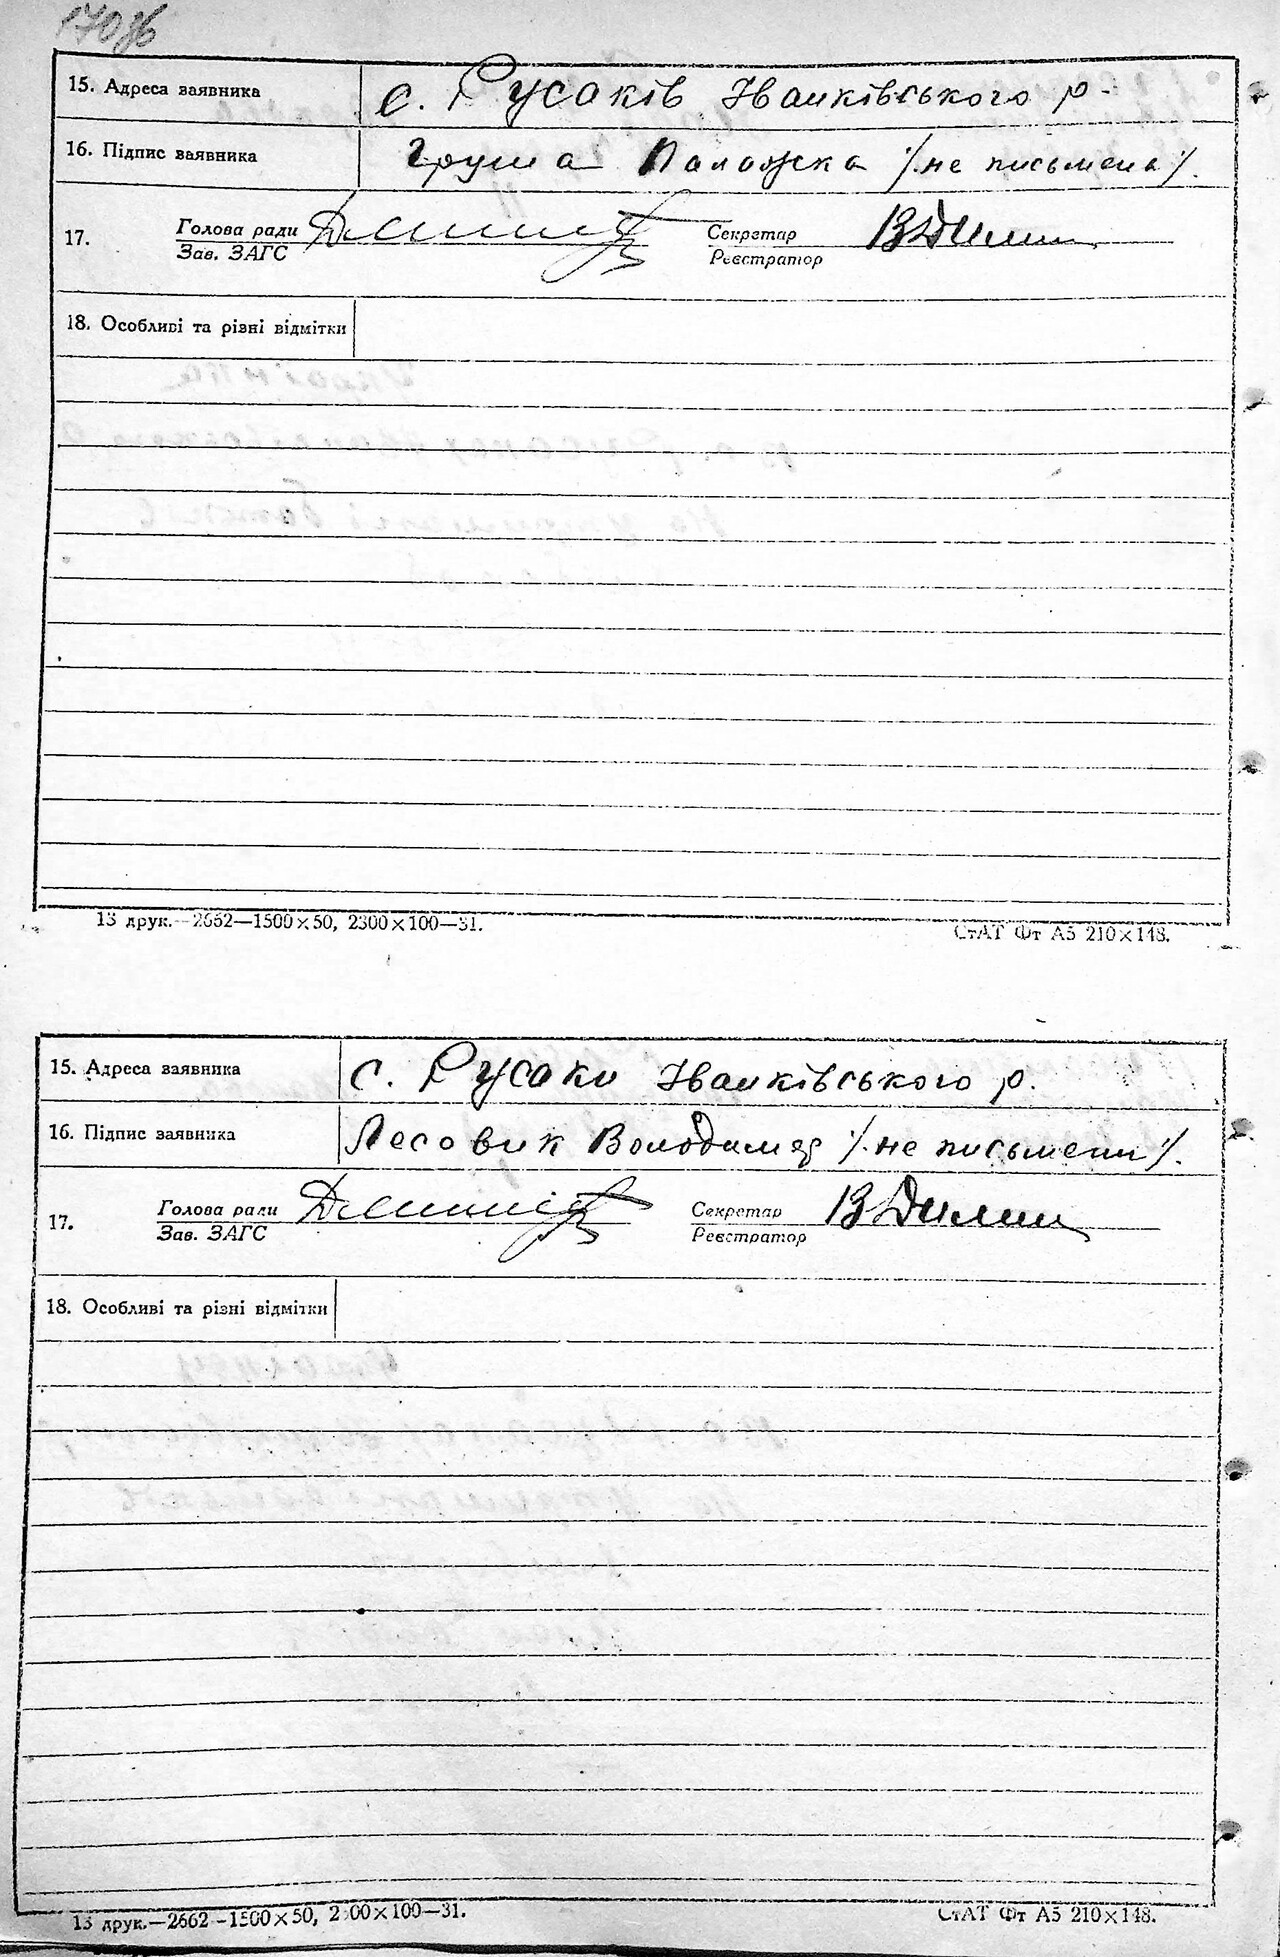 170зв
15. Адреса заявника с. Русаків Іванківського р.
16. Підпис заявника Груша Палажка /не письмена/.
Голова ради Секретар
17.
Зав. ЗАГС Реєстратор
18. Особливі та різні відмітки
13 друк.—2662—1500×50, 2300×100—31. СтАТ Фт А5 210×148.
15. Адреса заявника с. Русаки Іванківського р.
16. Підпис заявника Лесовик Володимер /не письмени/.
Голова ради Секретар
17.
Зав. ЗАГС Реєстратор
18. Особливі та різні відмітки
13 друк.—2662-1500×50, 2300×100—31. СтАТ Фт А5 210×148.